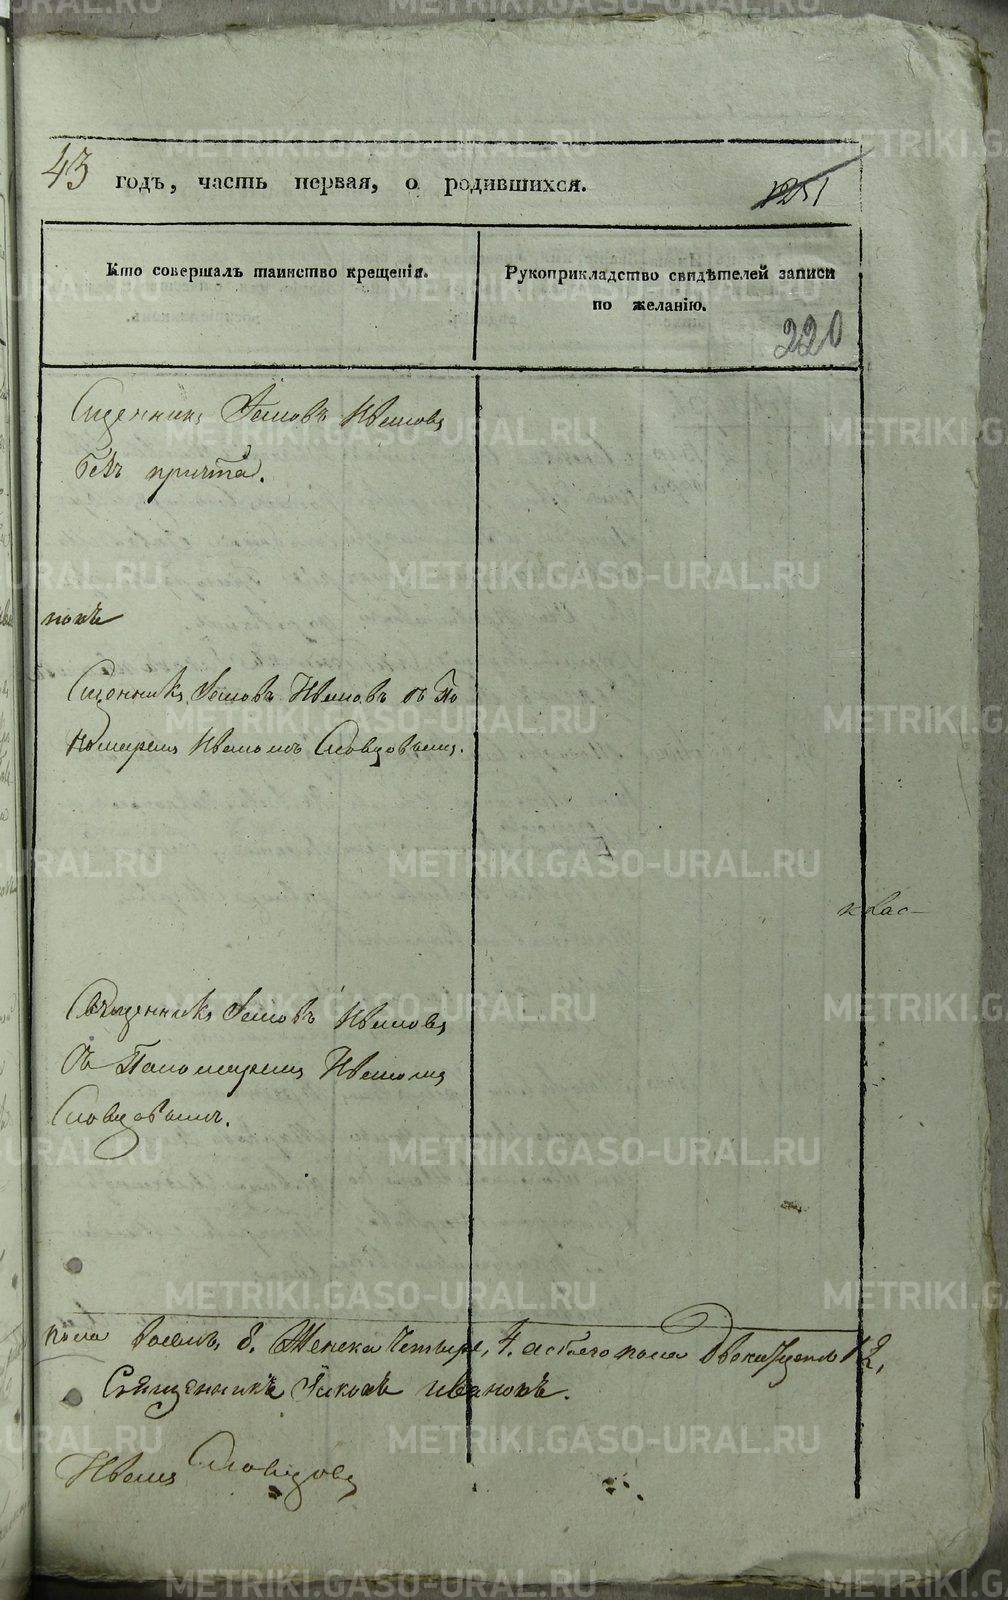 43 годъ, часть первая, о родившихся.
1251
Кто совершалъ таинство крещенія.
Рукоприкладство свидѣтелей записи
по желанію.
220
Сщенникъ Іаковъ Ивановъ
безъ причта.
Сщенникъ Іаковъ Ивановъ съ По
номаремъ Иваномъ Словцовымъ.
Священникъ Іаковъ Ивановъ
съ Пономаремъ Иваномъ
Словцовымъ.
пола восемь, 8. Женска четыре, 4. а обоего пола Двенадцать 12,
Священникъ Іаковъ Ивановъ.
Иванъ Словцовъ
METRIKI.GASO-URAL.RU